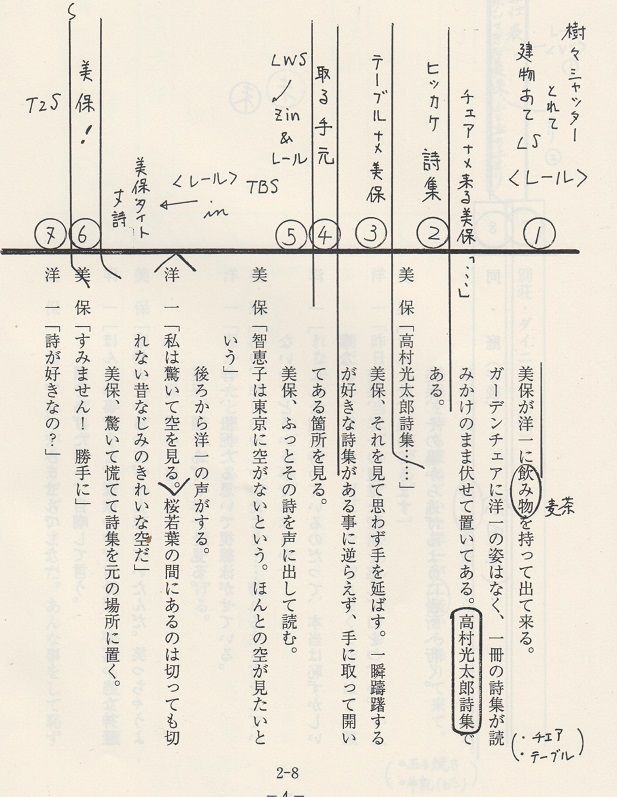 樹々ミャッター
とれて
建物あて LS
〈レール〉
①
チェアナメ来る美保「…」
ヒッカケ 詩集
②
テーブルナメ 美保
③
取る手元
④
LWS
Zin
&
レール
⑤
TBS
〈レール〉
in
美保タイト
寸詩
美保!
⑥
T2S
⑦
S
美保が洋一に飲み物を持って出て来る。
麦茶
ガーデンチェアに洋一の姿はなく、一冊の詩集が読
みかけのまま伏せて置いてある。高村光太郎詩集で
ある。
(・チェア
・テーブル)
美 保「高村光太郎詩集……」
美保、それを見て思わず手を延ばす。一瞬躊躇する
が好きな詩集がある事に逆らえず、手に取って開い
てある箇所を見る。
美保、ふっとその詩を声に出して読む。
美 保「智恵子は東京に空がないという。ほんとの空が見たいと
いう」
後ろから洋一の声がする。
洋 一「私は驚いて空を見る。桜若葉の間にあるのは切っても切
れない昔なじみのきれいな空だ」
美保、驚いて慌てて詩集を元の場所に置く。
美 保「すみません! 勝手に」
洋 一「詩が好きなの?」
2-8